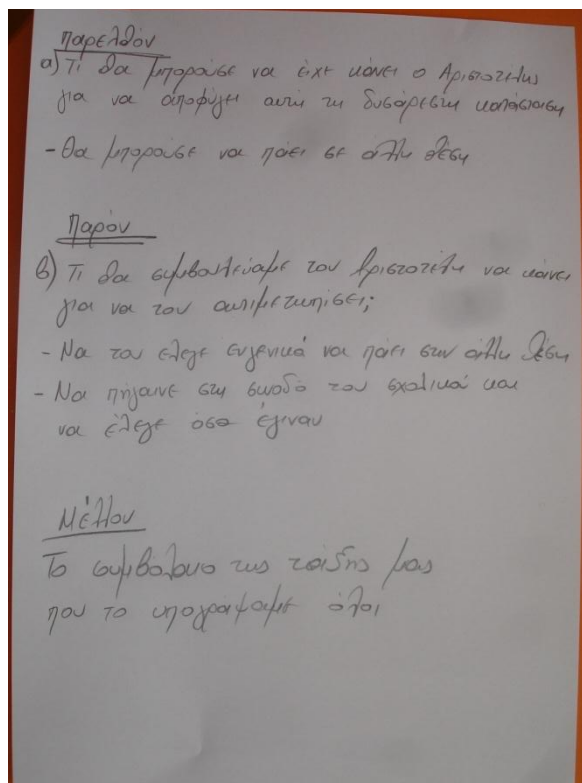 Παρελθόν
α) Τι θα μπορούσε να είχε κάνει ο Αριστοτέλης
για να αποφύγει αυτή τη δυσάρεστη κατάσταση
- Θα μπορούσε να πάει σε άλλη θέση
Παρόν
β) Τι θα συμβουλεύαμε τον Αριστοτέλη να κάνει
για να τον αντιμετωπίσει;
- Να του έλεγε ευγενικά να πάει στην άλλη θέση
- Να πήγαινε στη συνοδό του σχολικά και
να έλεγε όσα έγιναν
Μέλλον
Το συμβόλαιο της τάξης μας
που το υπογράψαμε όλοι